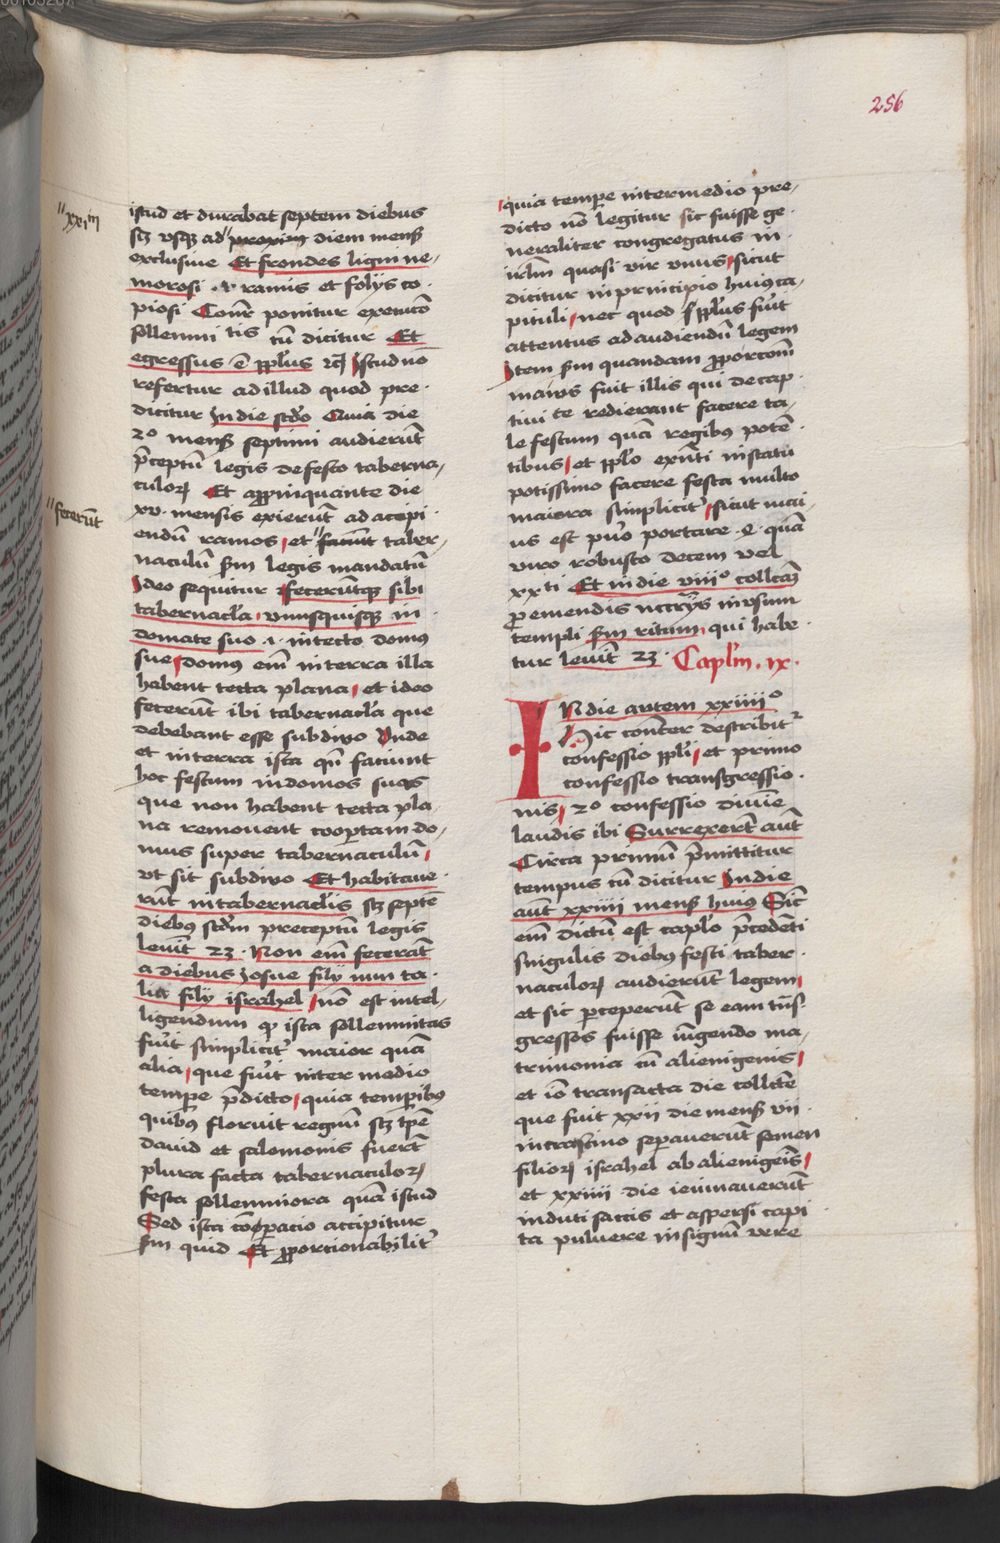 256
xxiii
istud et durabat septem diebus
sz vsqz ad proxim diem mensis
exclusiue Et frondes ligni ne
morosi .i. ramis et folijs co
piosi Conr ponitur executio
sollemni tis cū dicitur Et
egressus ē pplus rc Istud nō
refertur ad illud quod pre
dicitur In die scdo Quia die
2o mensis septimi audierūt
p̄ceptū legis de festo taberna
culoꝝ Et appinquante die
xv. mensis exierūt ad accipi
fecerūt
endū ramos et faciūt taber
naculū scdm legis mandatū
Ideo sequitur fecerūtqz sibi
tabernacl'a vnusquisqz in
domate suo .i. in tecto domus
sue domus em̄ in terra illa
habent tecta plana et ideo
fecerūt ibi tabernacl'a que
debebant esse sub diuo Vnde
et in terra ista qn̄ faciunt
hoc festum in domos suas
que non habent tecta pla
na remouent cooptam do
mus super tabernaculū
vt sit sub diuo Et habitaue
rūt in tabernacl'is sz septē
diebus scdm preceptū legis
leuit 23. Non em̄ fecerāt
a diebus Iosue filij nun ta
lia filij israhel nō est intel
ligendum qp ista sollemnitas
fuit simpliciter maior quā
alia que fuit inter medio
tempe p̄dicto quia temporibus
quibus floruit regnū sz tpe
dauid et salemonis fuerūt
plura facta tabernaculoꝝ
festa sollemniora quā istud
Sed ista compacio accipitur
scdm quid Et pportionabilit'
quia tempe intermedio pre
dicto nō legitur sic fuisse ge
neraliter congregatus in
irlm quasi vir vnus sicut
dicitur in principio huius ca
pituli nec quod sic pplus fuit
attentus ad audiendū legem
Item scdm quandam pporcōm
maius fuit illis qui de cap
tiui te redierant facere ta
le festum quā regibus potē
tibus et pplo exn̄ti in statu
potissimo facere festa multo
maiora simplicit' sicut mai
us est puo portare .e. quā
viro robusto decem vel
xxti Et in die viiio collcam
p emendis nccrijs in vsum
templi scdm ritum qui habe
tur leuit 23. Caplm .ix.
IN die autem xxiiiio
Hic conter describit'
confessio ppli et primo
confessio transgressio
nis 2o confessio diuine
laudis ibi Surrexert aūt
Circa primū p̄mittitur
tempus cū dicitur In die
aūt xxiiii mensis huius Sic
em̄ dictū est caplo p̄cedēti
singulis diebus festi taber
naculoꝝ audierūt legem
et sic perceperūt se eam tns
gressos fuisse iūgendo ma
trimonia cū alienigenis
et iō transacta die collcte
que fuit xxii die mensis vii
in crastino separauerūt semen
filioꝝ israhel ab alienigeis
et xxiiii die ieiunauerūt
induti saccis et aspersi capi
ta puluere in signū vere